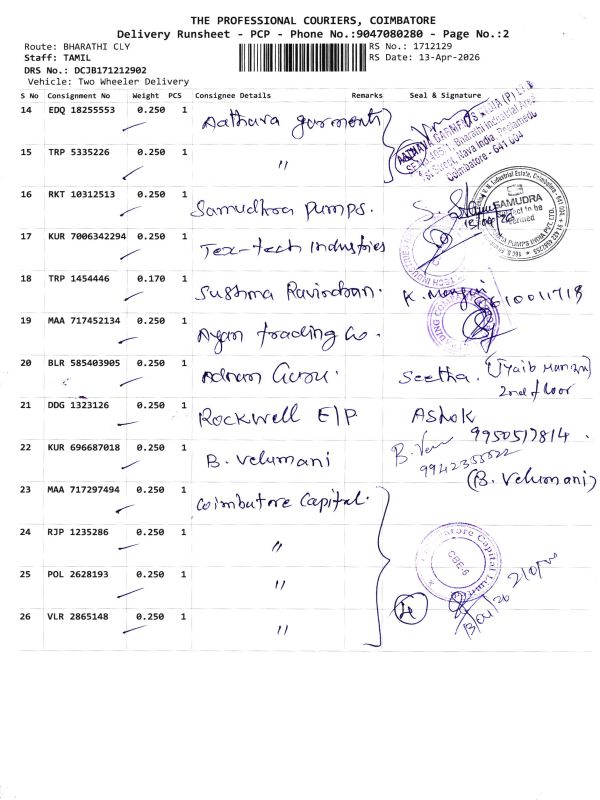 THE PROFESSIONAL COURIERS, COIMBATORE
Delivery Runsheet - PCP - Phone No.:9047080280 - Page No.:2
Route: BHARATHI CLY RS No.: 1712129
Staff: TAMIL RS Date: 13-Apr-2026
DRS No.: DCJB171212902
Vehicle: Two Wheeler Delivery
S No Consignment No Weight PCS Consignee Details Remarks Seal & Signature
14 EDQ 18255553 0.250 1 Aathava garments
AATHAVA GARMENTS INDIA (P) LTD
Bharathi Industrial Area
Coimbatore - 641 004
15 TRP 5335226 0.250 1 "
16 RKT 10312513 0.250 1 Samudhra Pumps.
SAMUDRA
PUMPS INDIA PVT. LTD.
17 KUR 7006342294 0.250 1 Tex-tech Industries
18 TRP 1454446 0.170 1 Sushma Ravindran.
19 MAA 717452134 0.250 1 Ayan trading Co.
20 BLR 585403905 0.250 1 Adnan Guru. Seetha.
2nd floor
21 DDG 1323126 0.250 1 Rockwell E/P Ashok
9950517814.
22 KUR 696687018 0.250 1 B. Velumani
(B. Velumani)
23 MAA 717297494 0.250 1 Coimbatore Capital.
24 RJP 1235286 0.250 1 "
25 POL 2628193 0.250 1 "
CBE-6
26 VLR 2865148 0.250 1 " 4